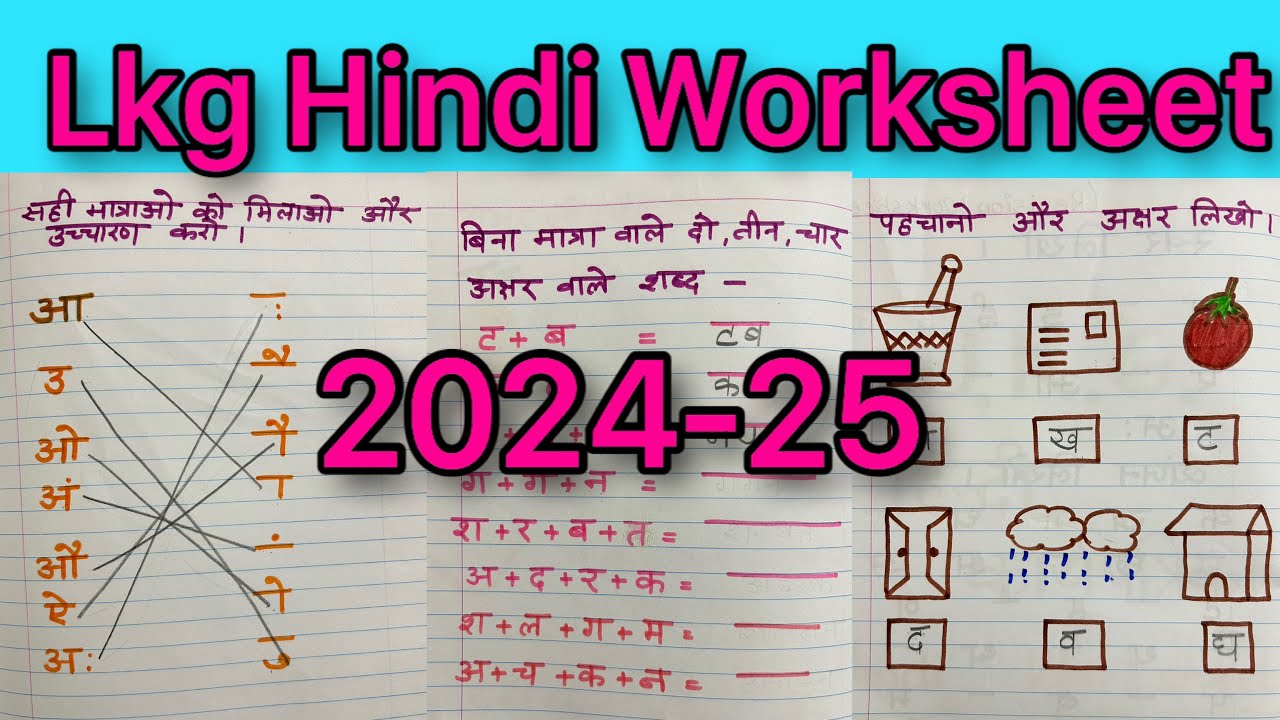 Lkg Hindi Worksheet
2024-25
सही मात्राओ को मिलाओ और
उच्चारण करो ।
आ
उ
ओ
अं
औ
ऐ
अः
ः
ै
ौ
ा
ं
ो
ु
बिना मात्रा वाले दो, तीन, चार
अक्षर वाले शब्द –
ट + ब = टब
क
ग + ग + न =
श + र + ब + त =
अ + द + र + क =
श + ल + ग + म =
अ + च + क + न =
पहचानो और अक्षर लिखो ।
ख ट
द व घ